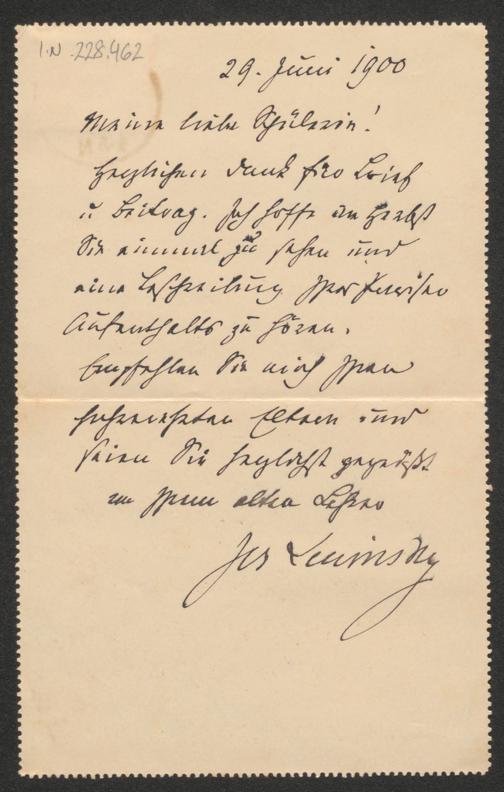 I.N. 228.462
29. Juni 1900
Meine liebe Schülerin!
Herzlichen Dank für Brief
u Beitrag. Ich hoffe im Herbst
Sie einmal zu sehen und
eine Beschreibung Ihres Pariser
Aufenthalts zu hören.
Empfehlen Sie mich Ihren
hochverehrten Eltern und
seien Sie herzlichst gegrüßt
von Ihrem alten Lehrer
Jos Lewinsky